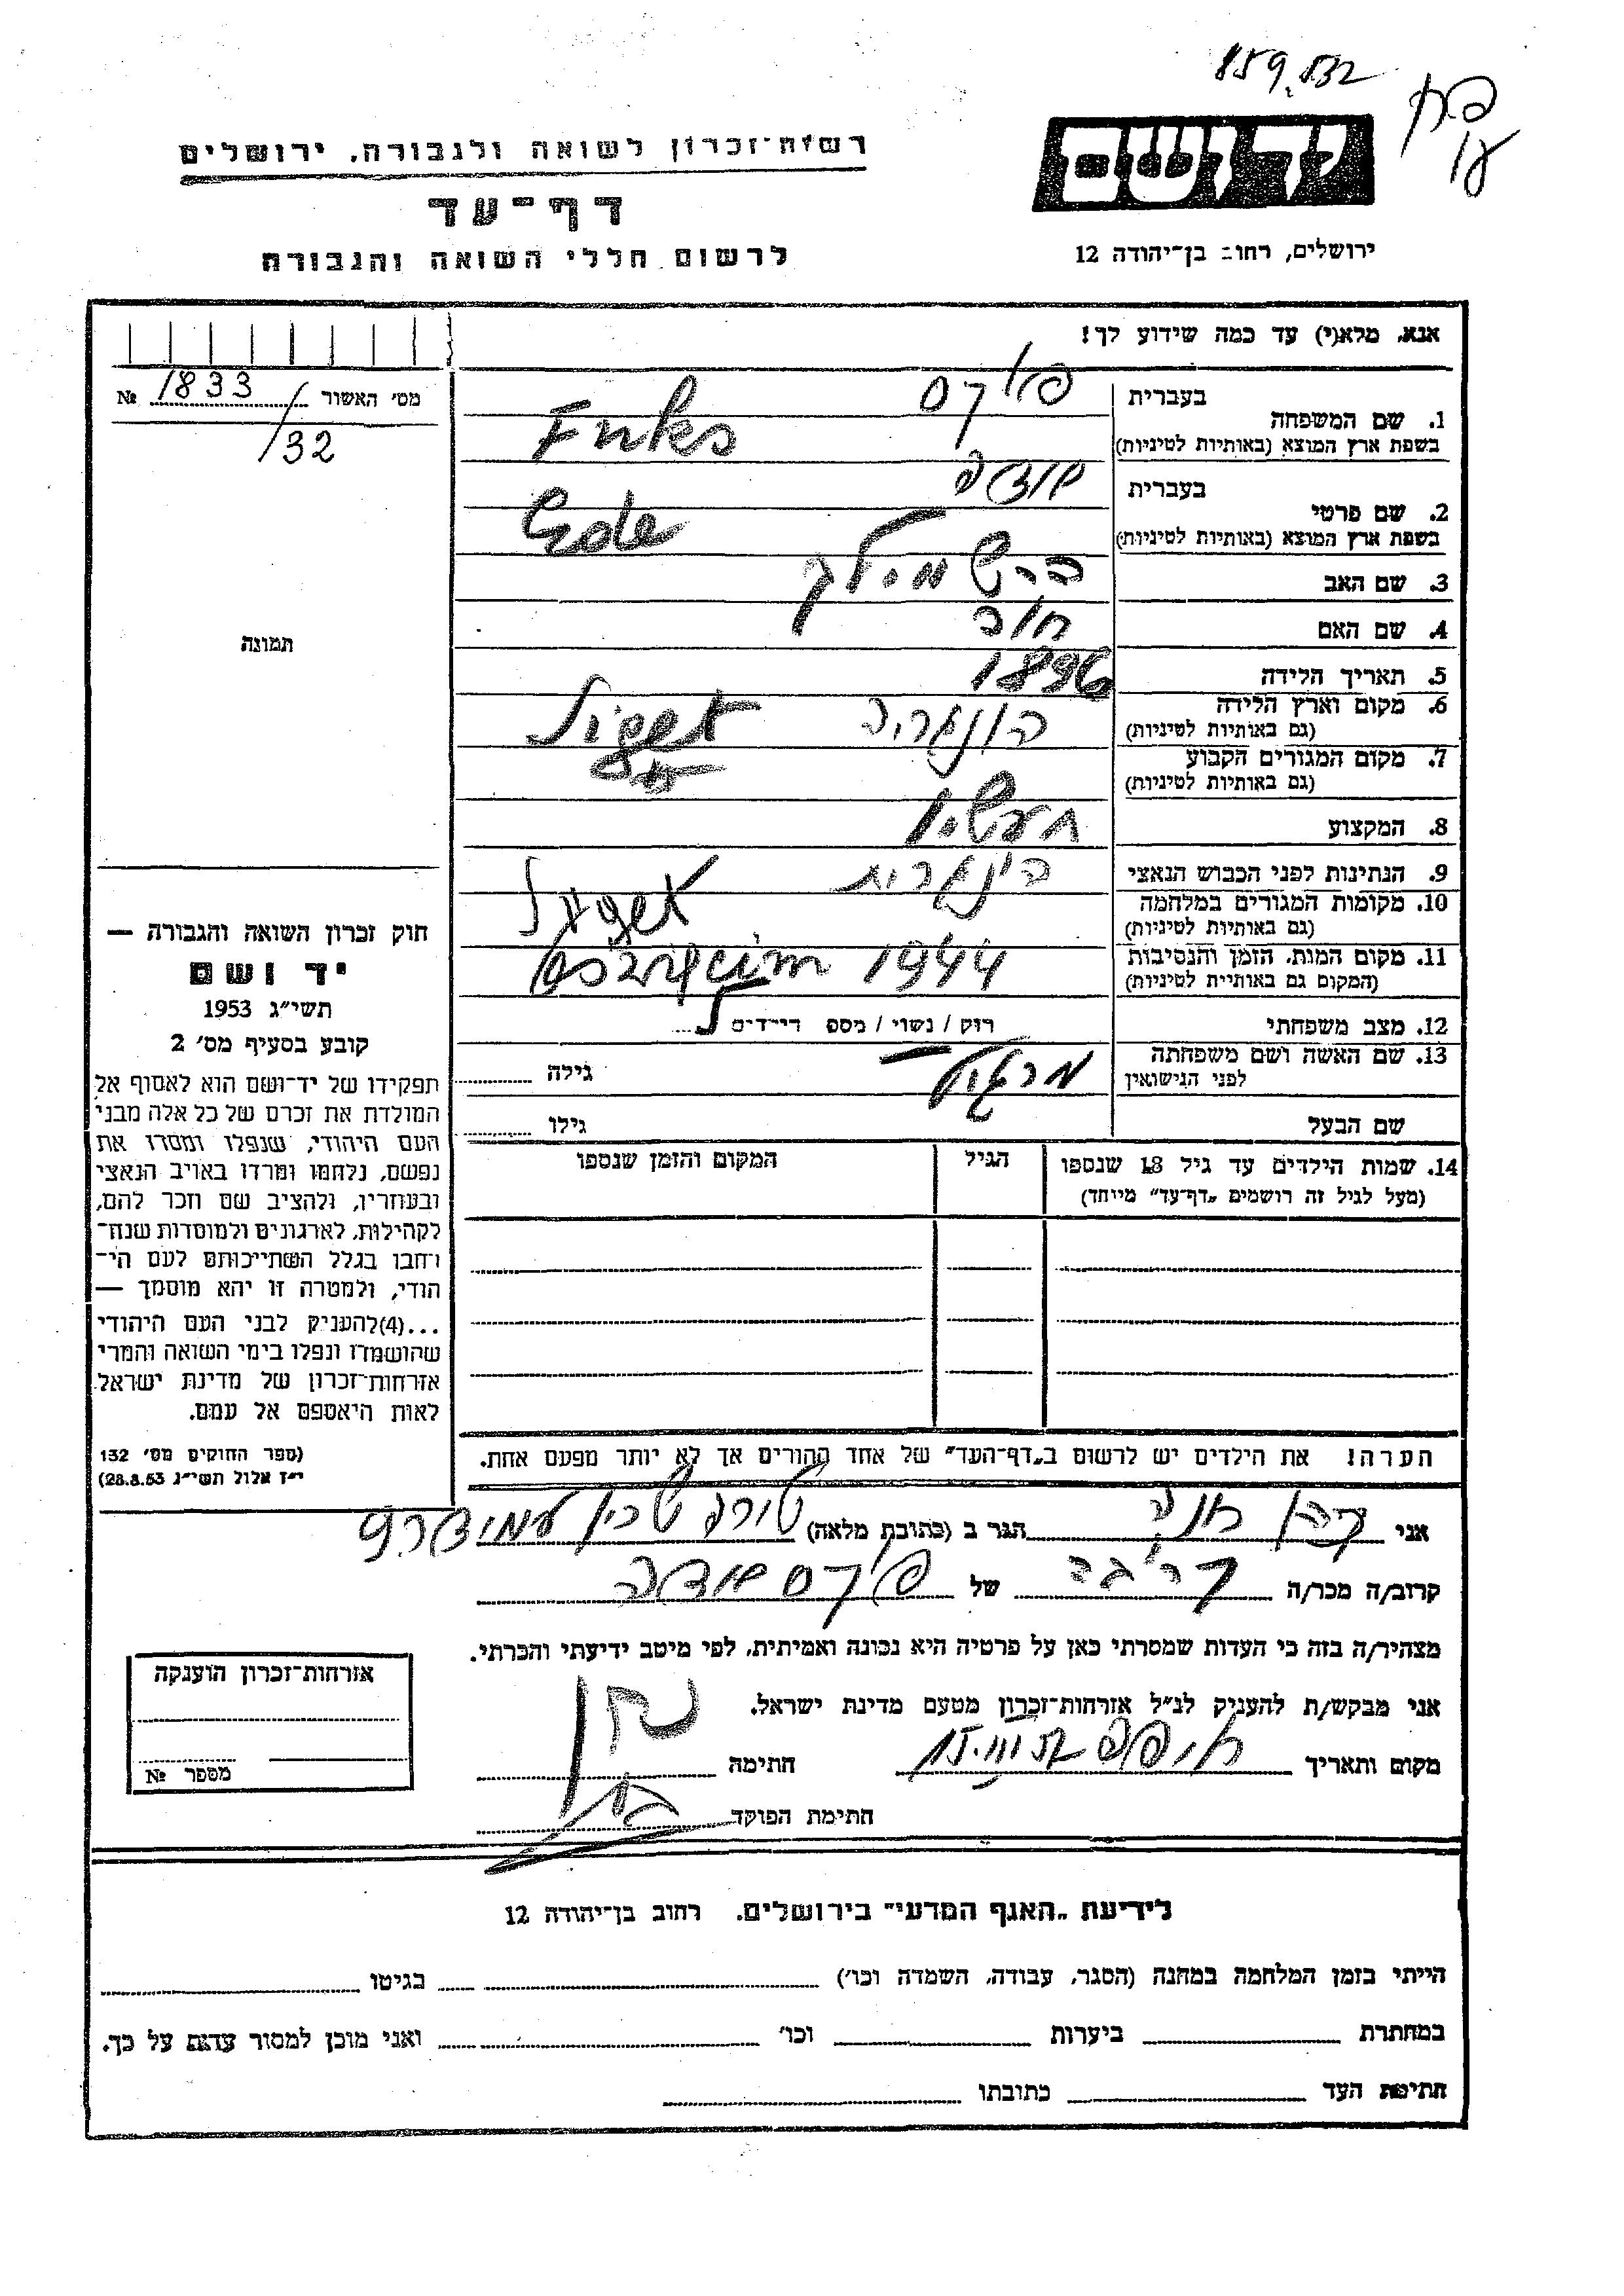 859.532
רשות-זכרון לשואה ולגבורה. ירושלים
דף-עד
לרשום חללי השואה והגבורה
ידושם
ירושלים, רחוב בן-יהודה 12
אנא, מלא(י) עד כמה שידוע לך!
מס׳ האשור № 1833/32
תמונה
1. שם המשפחה
בעברית פוקס
בשפת ארץ המוצא (באותיות לטיניות) Fuks
2. שם פרטי
בעברית
בשפת ארץ המוצא (באותיות לטיניות)
3. שם האב הירש מילך
4. שם האם חוה
5. תאריך הלידה 1896
6. מקום וארץ הלידה הונגריה Siget
(גם באותיות לטיניות)
7. מקום המגורים הקבוע
(גם באותיות לטיניות)
8. המקצוע
9. הנתינות לפני הכבוש הנאצי הונגרית
10. מקומות המגורים במלחמה Siget
(גם באותיות לטיניות)
11. מקום המות, הזמן והנסיבות 1944
(המקום גם באותיית לטיניות)
12. מצב משפחתי רוק / נשוי / מספ הילדים
13. שם האשה ושם משפחתה
לפני הנישואין
גילה
שם הבעל גילו
14. שמות הילדים עד גיל 18 שנספו
(מעל לגיל זה רושמים „דף-עד״ מיוחד)
הגיל
המקום והזמן שנספו
הערה! את הילדים יש לרשום ב„דף-העד״ של אחד ההורים אך לא יותר מפעם אחת.
חוק זכרון השואה והגבורה —
יד ושם
תשי״ג 1953
קובע בסעיף מס׳ 2
תפקידו של יד-ושם הוא לאסוף אל
המולדת את זכרם של כל אלה מבני
העם היהודי, שנפלו ומסרו את
נפשם, נלחמו ומרדו באויב הנאצי
ובעוזריו, ולהציב שם וזכר להם,
לקהילות, לארגונים ולמוסדות שנח-
רחבו בגלל השתייכותם לעם הי-
הודי, ולמטרה זו יהא מוסמך —
...(4)להעניק לבני העם היהודי
שהושמדו ונפלו בימי השואה והמרי
אזרחות-זכרון של מדינת ישראל
לאות היאספם אל עמם.
(ספר החוקים מס׳ 132
י״ז אלול תשי״ג 28.8.53)
אני הגר ב (כתובת מלאה)
קרוב/ה מכר/ה של פוקס
מצהיר/ה בזה כי העדות שמסרתי כאן על פרטיה היא נכונה ואמיתית, לפי מיטב ידיעתי והכרתי.
אני מבקש/ת להעניק לנ״ל אזרחות-זכרון מטעם מדינת ישראל.
מקום ותאריך חתימה
חתימת הפוקד
אזרחות-זכרון הוענקה
מספר №
לידיעת „האגף המדעי״ בירושלים. רחוב בן-יהודה 12
הייתי בזמן המלחמה במחנה (הסגר, עבודה, השמדה וכו׳) בגיטו
במחתרת ביערות וכו׳ ואני מוכן למסור עדות על כך.
חתימת העד כתובתו